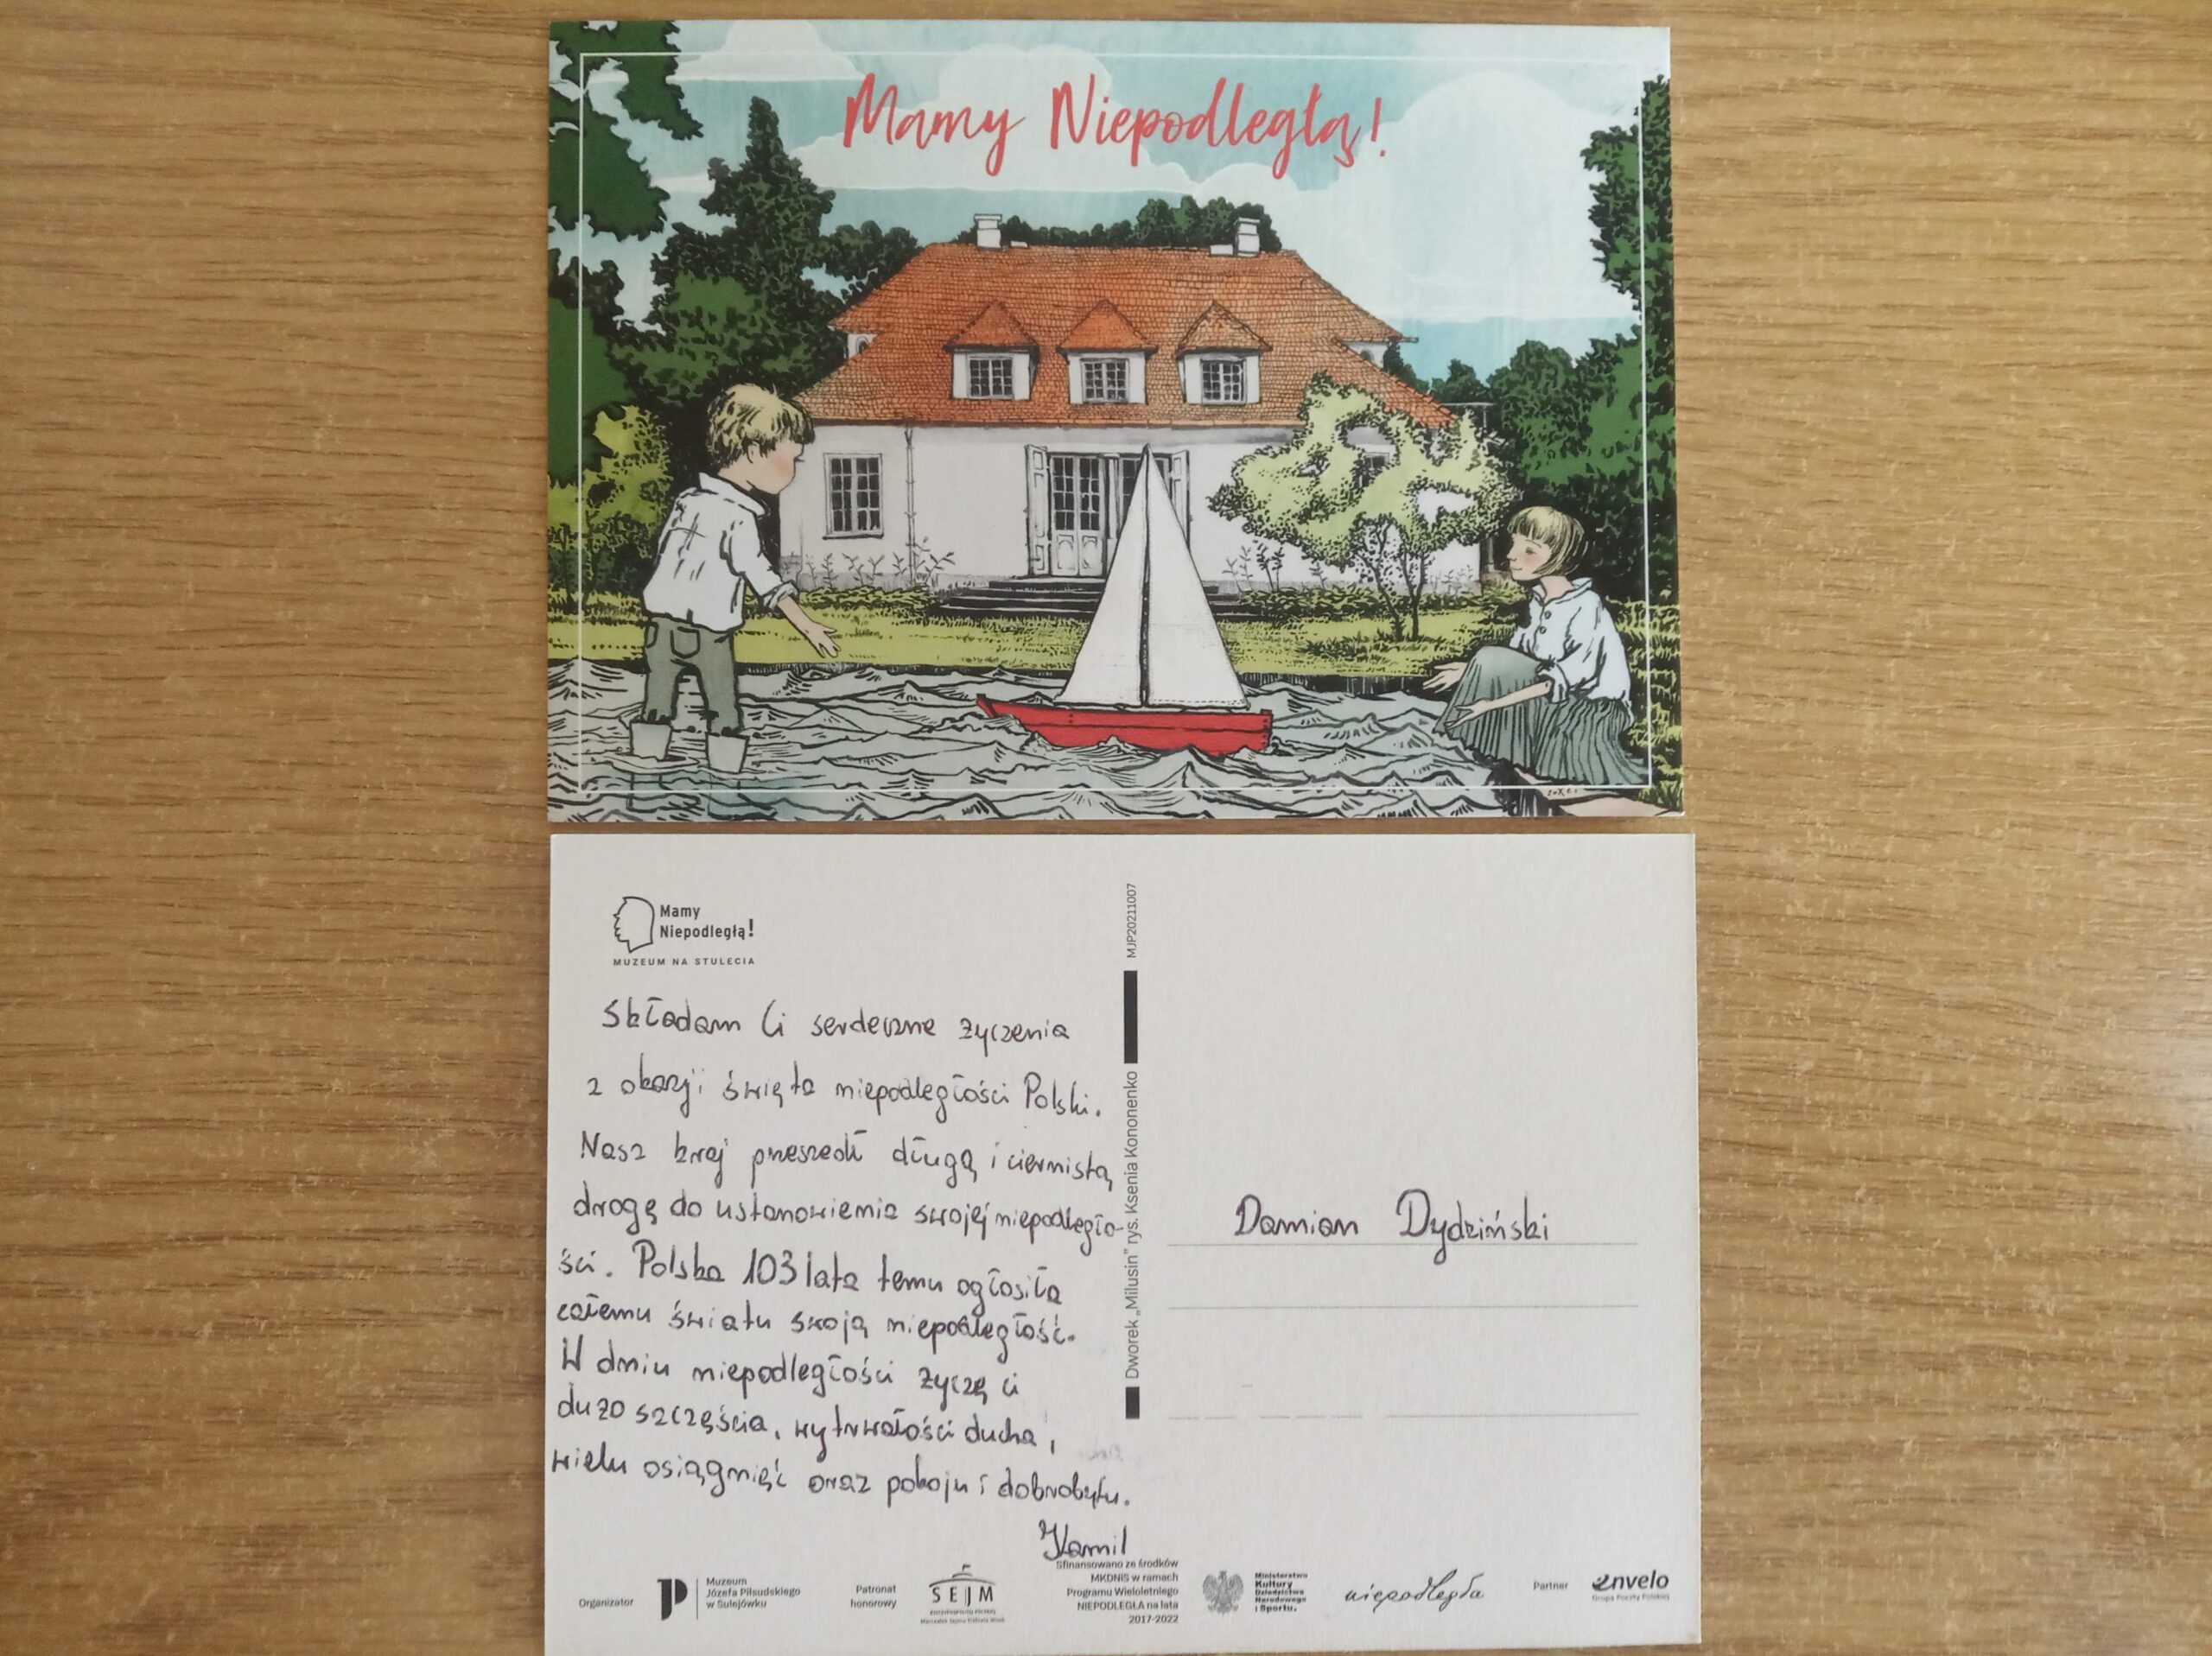 Mamy Niepodległą!
Mamy
Niepodległą!
MUZEUM NA STULECIA
Składam Ci serdeczne życzenia
z okazji święta niepodległości Polski.
Nasz kraj przeszedł długą i ciernistą
drogę do ustanowienia swojej niepodległo-
ści. Polska 103 lata temu ogłosiła
całemu światu swoją niepodległość.
W dniu niepodległości życzę ci
dużo szczęścia, wytrwałości ducha,
wielu osiągnięć oraz pokoju i dobrobytu.
Kamil
Dworek „Milusin” rys. Ksenia Kononenko
MJP20211007
Damian Dydziński
Organizator
Muzeum
Józefa Piłsudskiego
w Sulejówku
Patronat
honorowy
SEJM
Sfinansowano ze środków
MKDNiS w ramach
Programu Wieloletniego
NIEPODLEGŁA na lata
2017-2022
Ministerstwo
Kultury
Dziedzictwa
Narodowego
i Sportu.
niepodległa
Partner
envelo
Grupa Poczty Polskiej